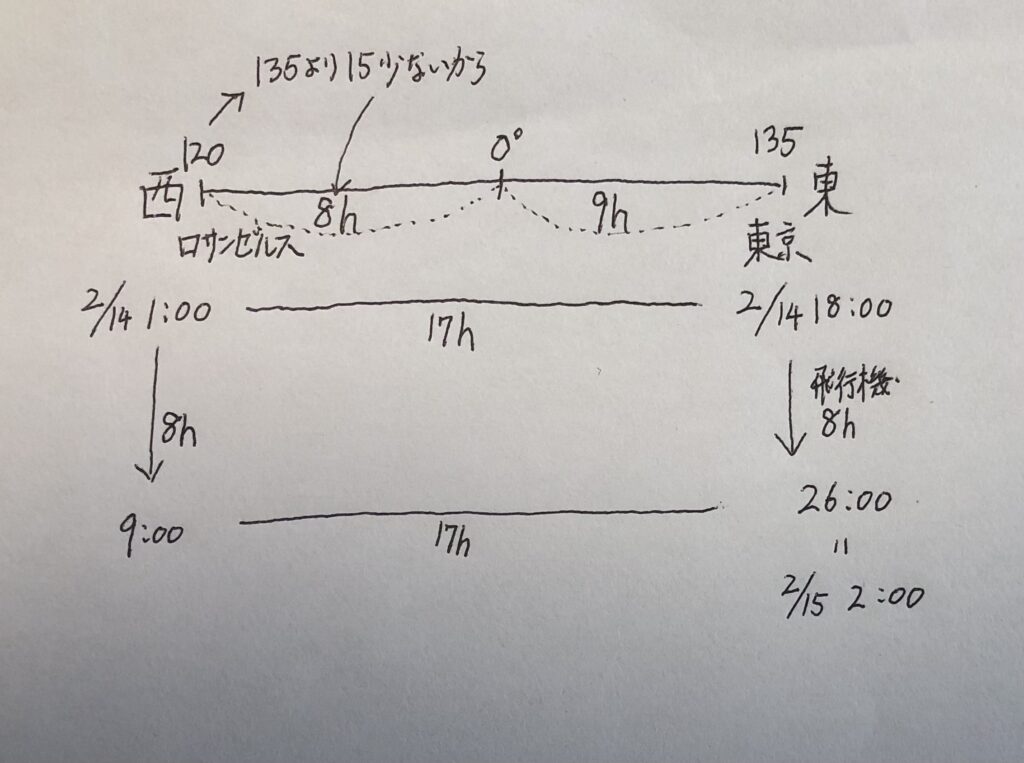 135より15少ないから
120 0° 135
西 8h 9h 東
ロサンゼルス 東京
2/14 1:00 17h 2/14 18:00
8h 飛行機 8h
9:00 17h 26:00
=
2/15 2:00